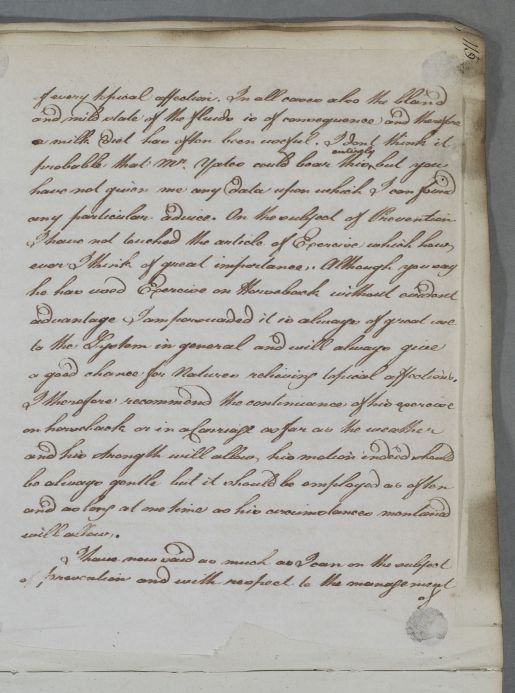 115
of every topical affection. In all cases also the bland
and mild state of the fluids is of consequence and therefore
a milk diet has often been useful. I dont think it
probable that Mr. Yates could bear this entirely but you
have not given me any data upon which I can found
any particular advice. On the subject of Prevention
I have not touched the article of Exercise which how„
ever I think of great importance. Although you say
he has used Exercise on Horseback without evident
advantage I am perswaded it is always of great use
to the System in general and will always give
a good chance for Natures relieving topical affections.
I therefore recommend the continuance of his exercise
on horseback or in a Carriage as far as the weather
and his strength will allow, his motion indeed should
be always gentle but it should be employed as often
and as long at one time as his circumstances
will allow.
I have now said as much as I can on the subject
of prevention and with respect to the management
of